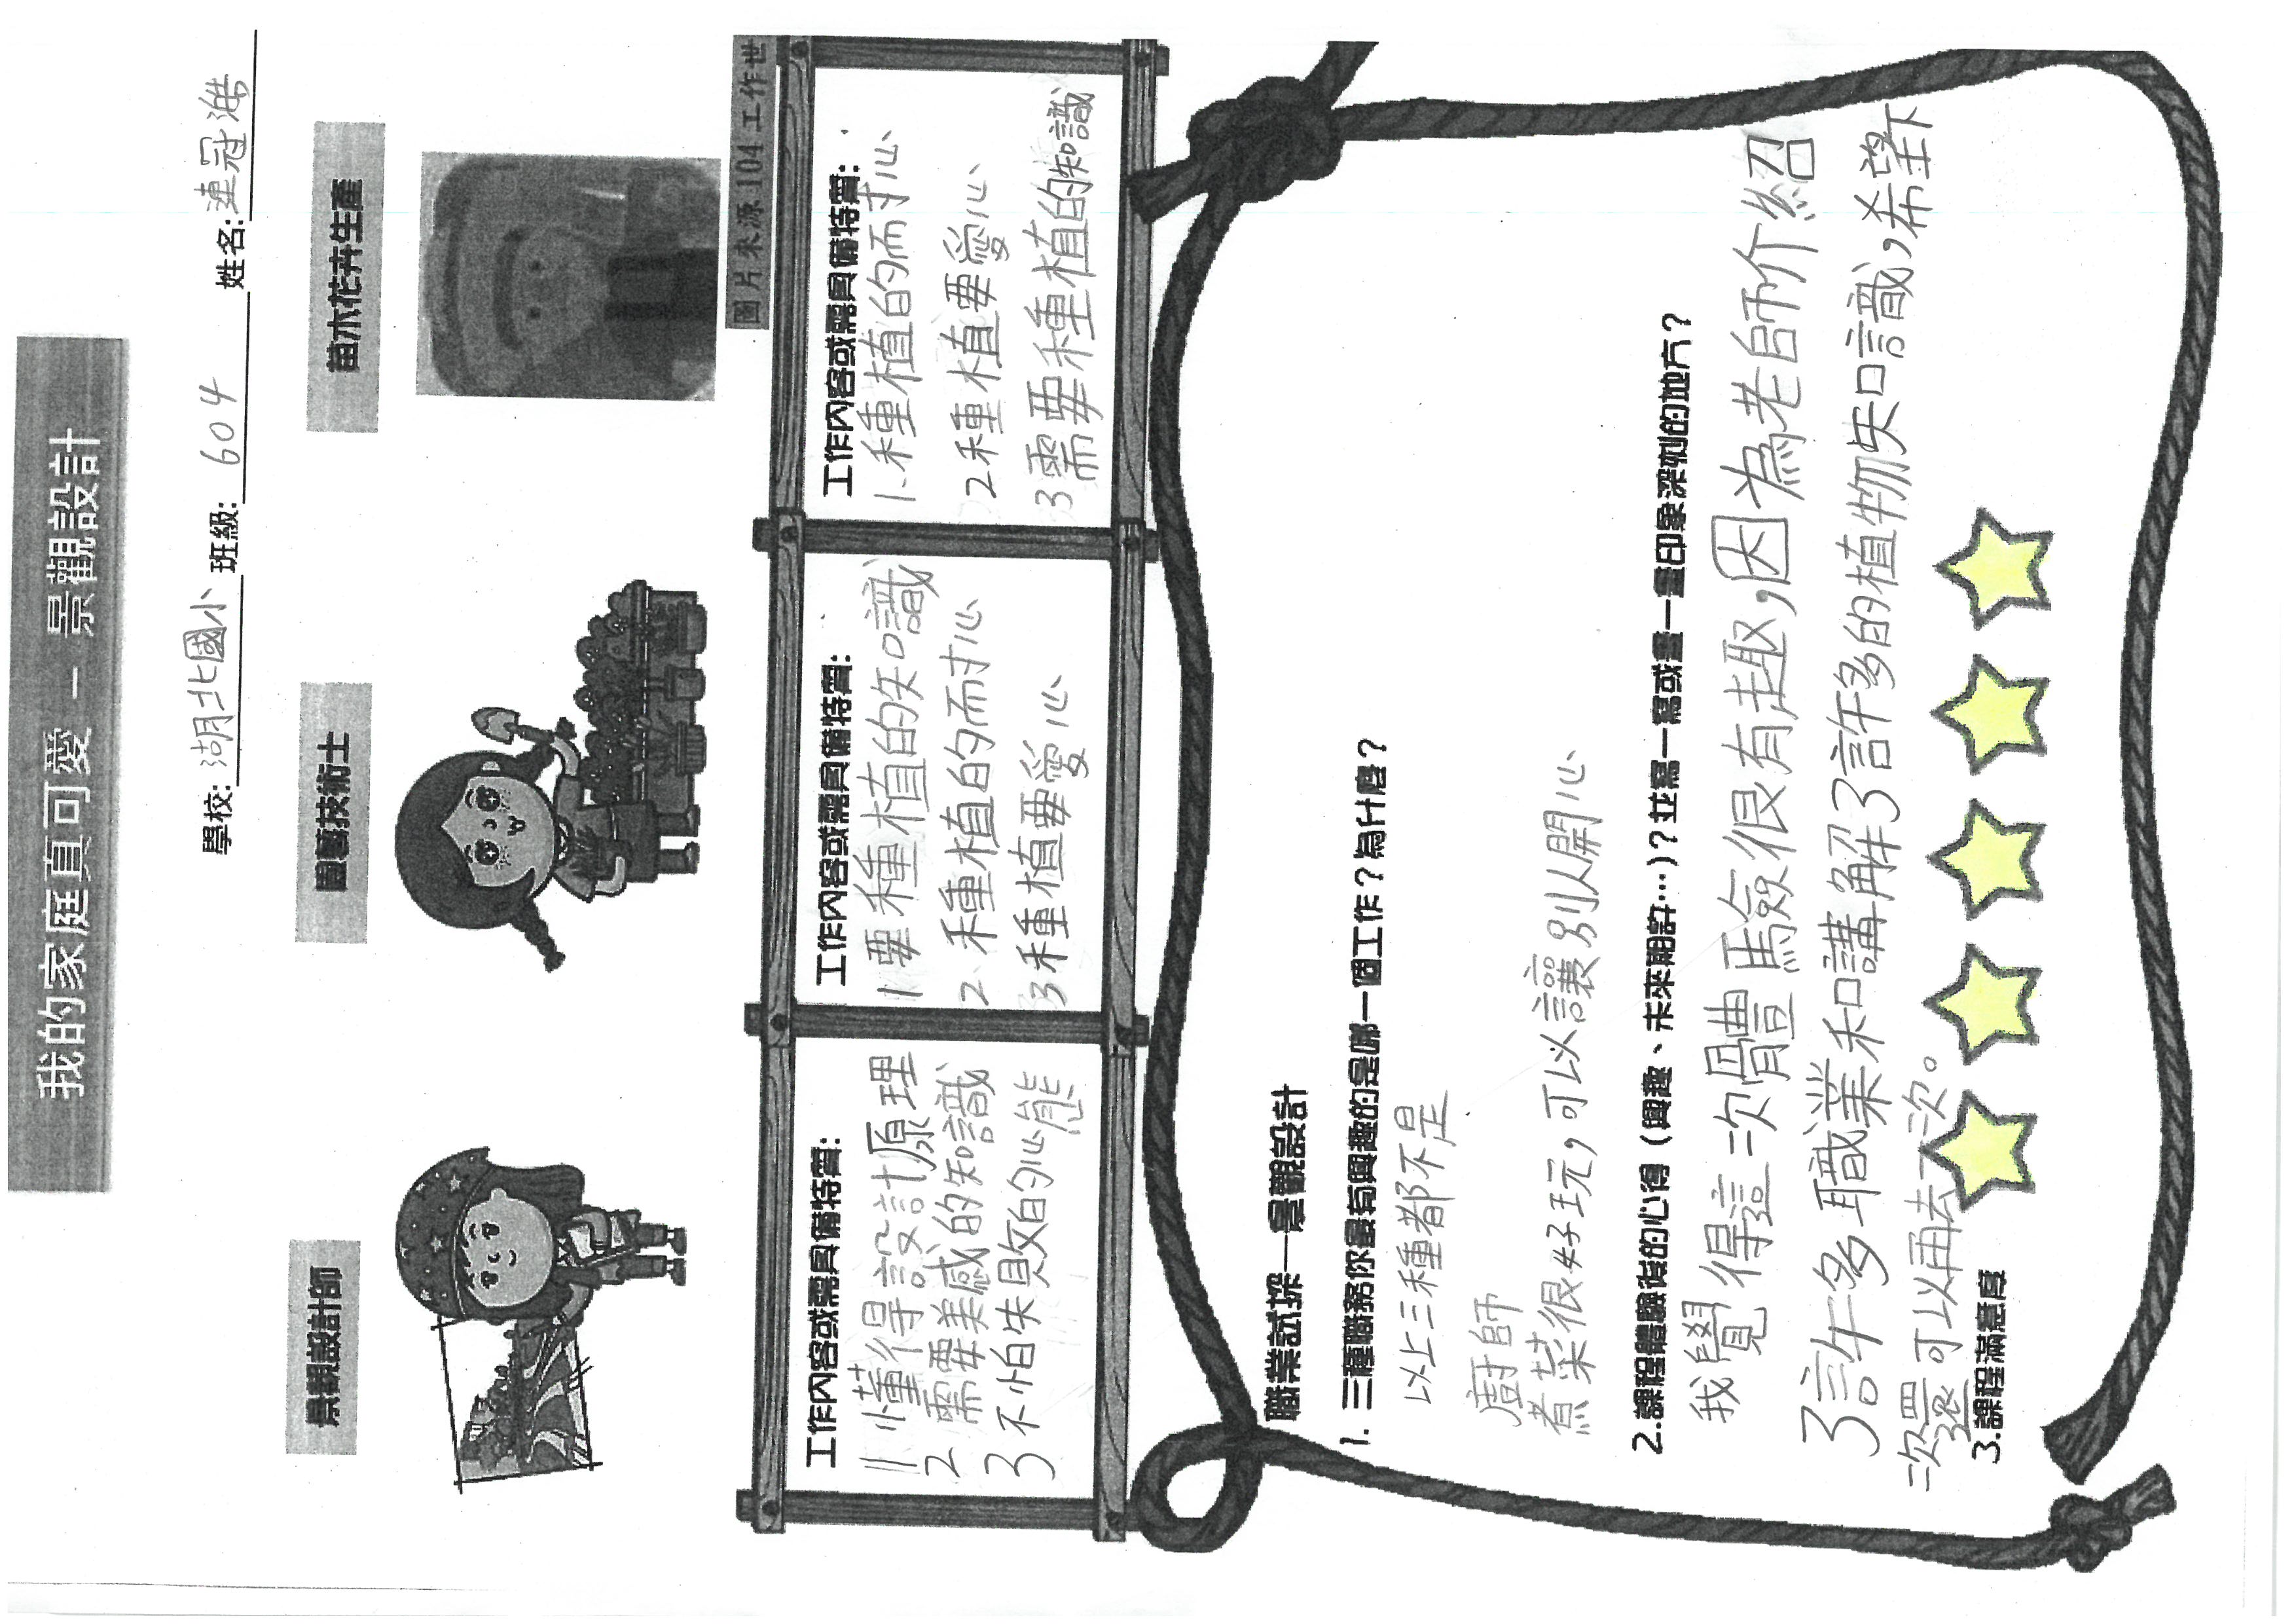 我的家庭真可愛 － 景觀設計
學校: 湖北國小 班級: 604 姓名: 連冠
景觀設計師
園藝技術士
苗木花卉生產
圖片來源104工作世
工作內容或需具備特質:
1.懂得設計原理
2需要美感的知識
3不怕失敗的心態
工作內容或需具備特質:
1要種植的知識
2.種植的耐心
3種植要愛心
工作內容或需具備特質:
1.種植的耐心
2種植要愛心
3需要種植的知識
職業試探─景觀設計
1. 三種職務你最有興趣的是哪一個工作？為什麼？
以上三種都不是
廚師
煮菜很好玩，可以讓別人開心
2.課程體驗後的心得（興趣、未來期許…)？並寫一寫或畫一畫印象深刻的地方？
我覺得這次體驗很有趣，因為老師介紹
了許多職業和講解了許多的植物知識，希望下
次還可以再去一次。
3.課程滿意度